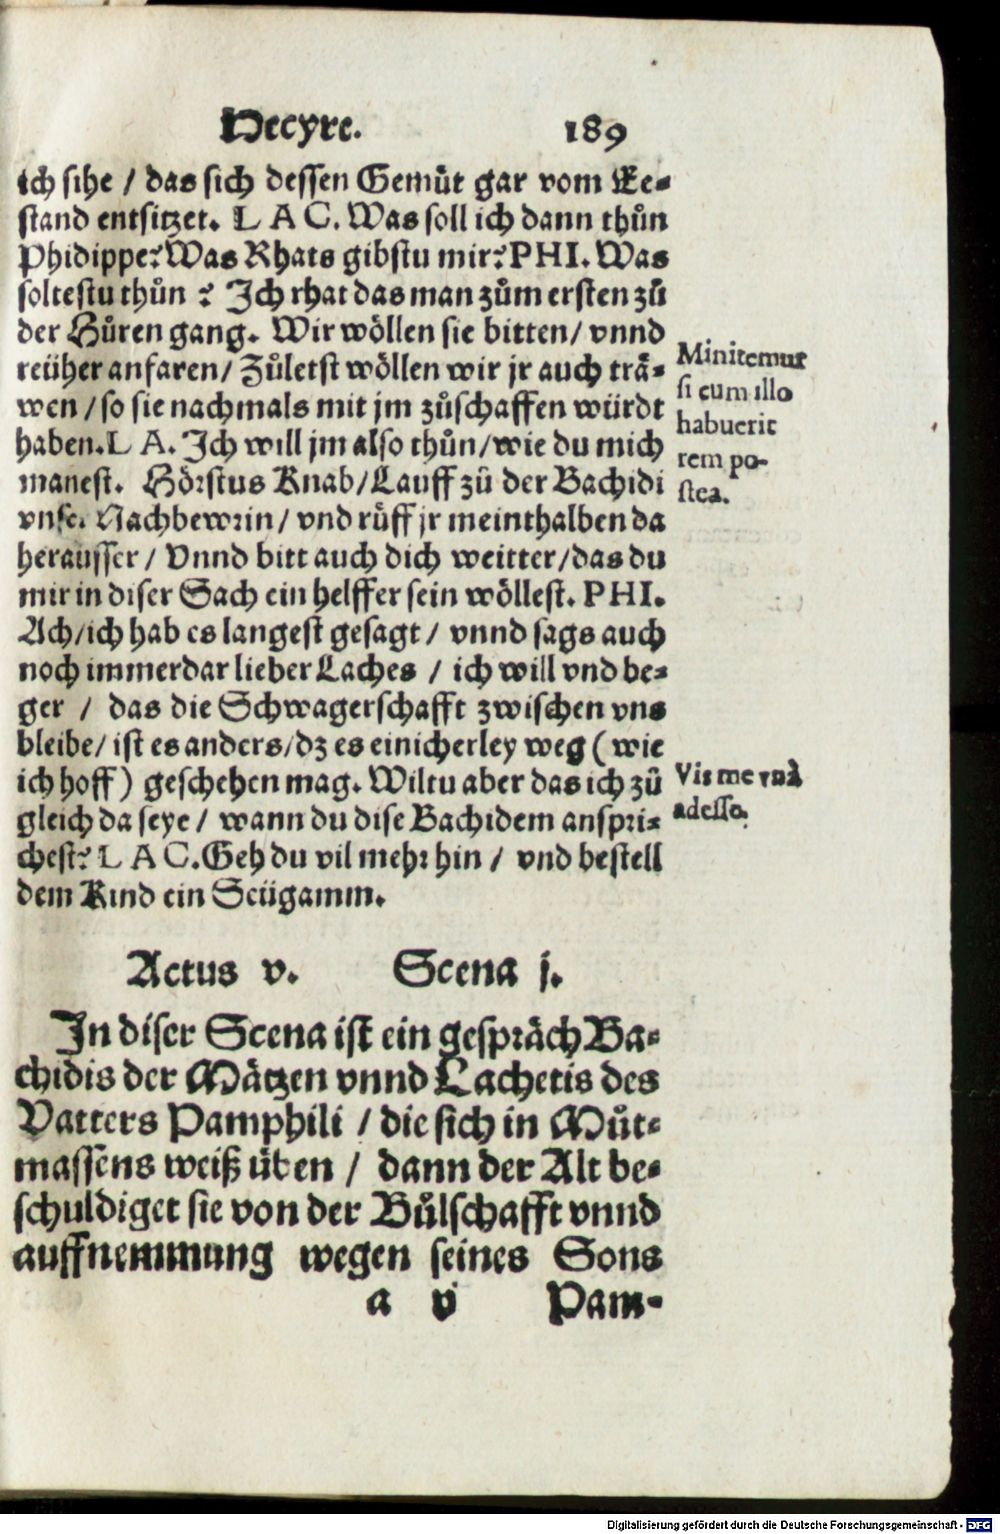 Hecyre. 189
ich sihe / das sich dessen Gemůt gar vom Ee-
stand entsitzet. L A C. Was soll ich dann thůn
Phidippe? Was Rhats gibstu mir? PHI. Was
soltestu thůn ? Ich rhat das man zům ersten zů
der Hůren gang. Wir wöllen sie bitten / vnnd
reüher anfaren / Zůletst wöllen wir jr auch trä-
wen / so sie nachmals mit jm zůschaffen würdt
haben. L A. Ich will jm also thůn / wie du mich
manest. Hörstus Knab / Lauff zů der Bachidi
vnse. Nachbewrin / vnd růff jr meinthalben da
herausser / Vnnd bitt auch dich weitter / das du
mir in diser Sach ein helffer sein wöllest. PHI.
Ach / ich hab es langest gesagt / vnnd sags auch
noch immerdar lieber Laches / ich will vnd be-
ger / das die Schwagerschafft zwischen vns
bleibe / ist es anders / dz es einicherley weg ( wie
ich hoff ) geschehen mag. Wiltu aber das ich zů
gleich da seye / wann du dise Bachidem anspri-
chest? L A C. Geh du vil mehr hin / vnd bestell
dem Kind ein Seügamm.
Minitemur
si cum illo
habuerit
rem po-
stea.
Vis me vnà
adesso.
Actus v. Scena j.
In diser Scena ist ein gespräch Ba-
chidis der Mätzen vnnd Lachetis des
Vatters Pamphili / die sich in Můt-
massens weiß üben / dann der Alt be-
schuldiget sie von der Bůlschafft vnnd
auffnemmung wegen seines Sons
a v Pam-
Digitalisierung gefördert durch die Deutsche Forschungsgemeinschaft - DFG